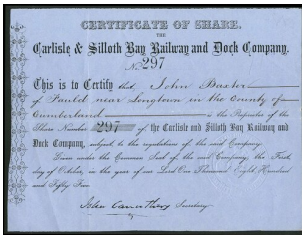 CERTIFICATE OF SHARE.
THE
Carlisle & Silloth Bay Railway and Dock Company.
No. 297
This is to Certify that John Baxter
of Fauld near Longtown in the County of
Cumberland is the Proprietor of the
Share Number 297 of the Carlisle and Silloth Bay Railway and
Dock Company, subject to the regulations of the said Company.
Given under the Common Seal of the said Company, the First
day of October, in the year of our Lord One Thousand Eight Hundred
and Fifty Five
John Carruthers Secretary